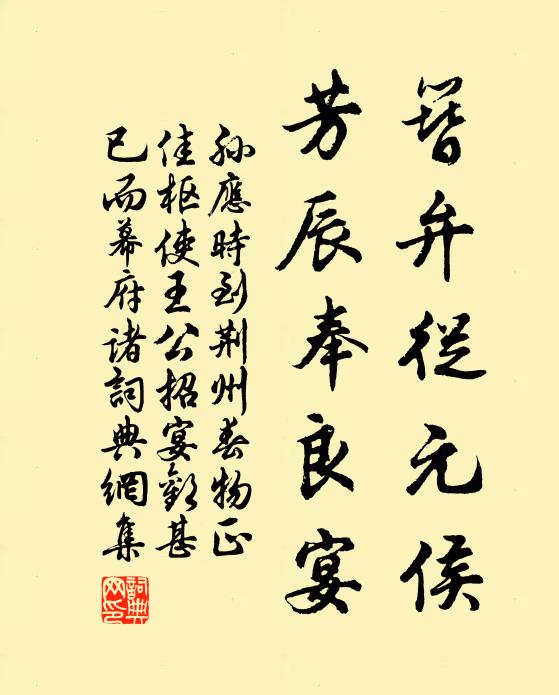 簪弁從元侯
芳辰奉良宴
孫應時到荆州春物正
佳樞使王公招宴歡甚
已而幕府諸詞典網集
詞典網印